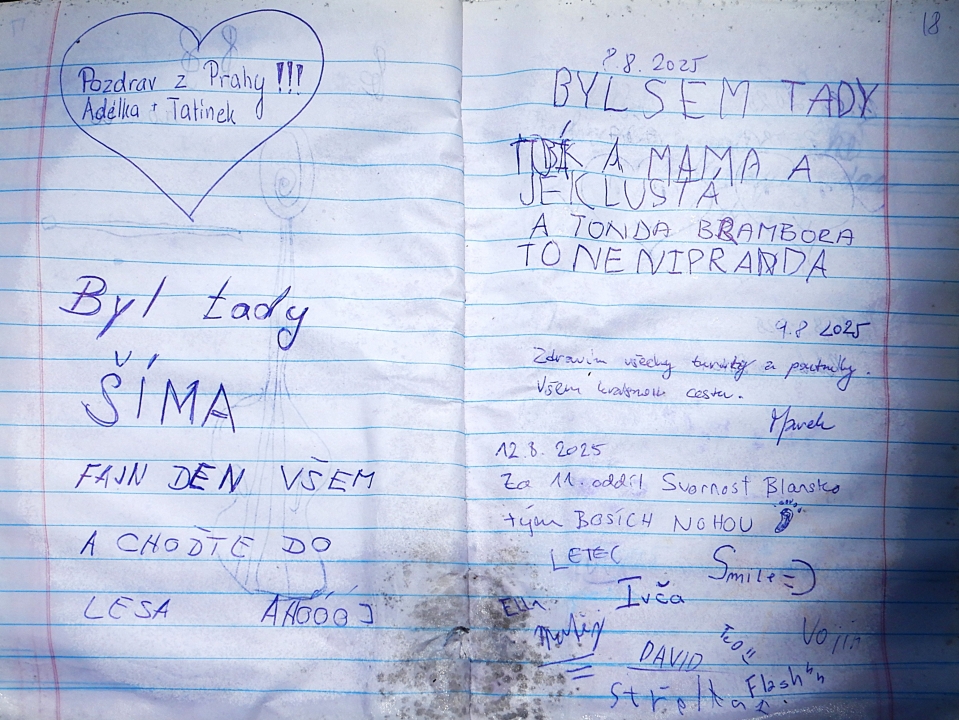 Pozdrav z Prahy !!!
Adélka + Tatínek
Byl tady
ŠÍMA
FAJN DEN VŠEM
A CHOĎTE DO
LESA AHOÓÓJ
18
8.8. 2025
BYL SEM TADY
A MAMA A
JEKLUSTA
A TONDA BRAMBORA
TO NENIPRANDA
9.8 2025
Zdravím všechy turisty a poutníky.
Všem krásnou cestu.
Marek
12.8. 2025
Za 11. oddíl Svornost Blansko
tým BOSÍCH NOHOU
LETEC
Smile =)
Ivča
Ella
Matěj
Vojin
DAVID
Střelka
Flash